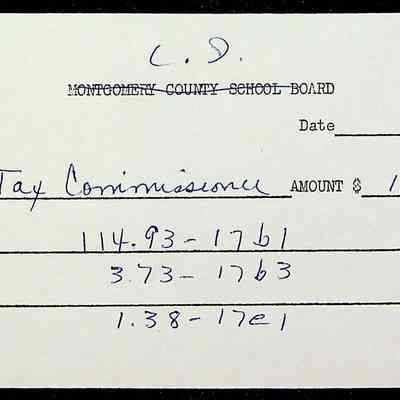 C. D.
MONTGOMERY COUNTY SCHOOL BOARD
Date
Tax Commissioner AMOUNT $ 1
114.93 - 17b1
3.73 - 17b3
1.38 - 17e1